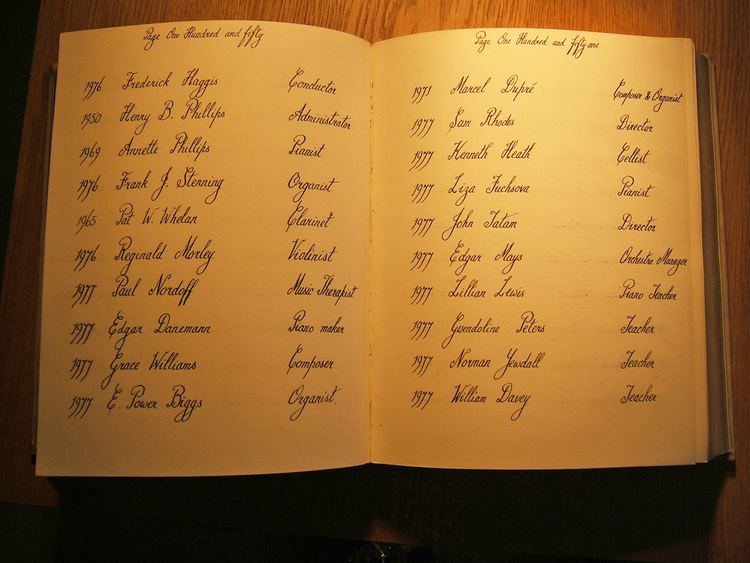 Page One Hundred and fifty
1976 Frederick Haggis Conductor
1950 Henry B. Phillips Administrator
1969 Annette Phillips Pianist
1976 Frank J. Stenning Organist
1965 Pat W. Whelan Clarinet
1976 Reginald Morley Violinist
1977 Paul Nordoff Music Therapist
1977 Edgar Danemann Piano maker
1977 Grace Williams Composer
1977 E. Power Biggs Organist
Page One Hundred and fifty-one
1971 Marcel Dupré Composer & Organist
1977 Sam Rhodes Director
1977 Kenneth Heath Cellist
1977 Liza Fuchsova Pianist
1977 John Tatam Director
1977 Edgar Mays Orchestra Manager
1977 Lillian Lewis Piano Teacher
1977 Gwendoline Peters Teacher
1977 Norman Yewdall Teacher
1977 William Davey Teacher